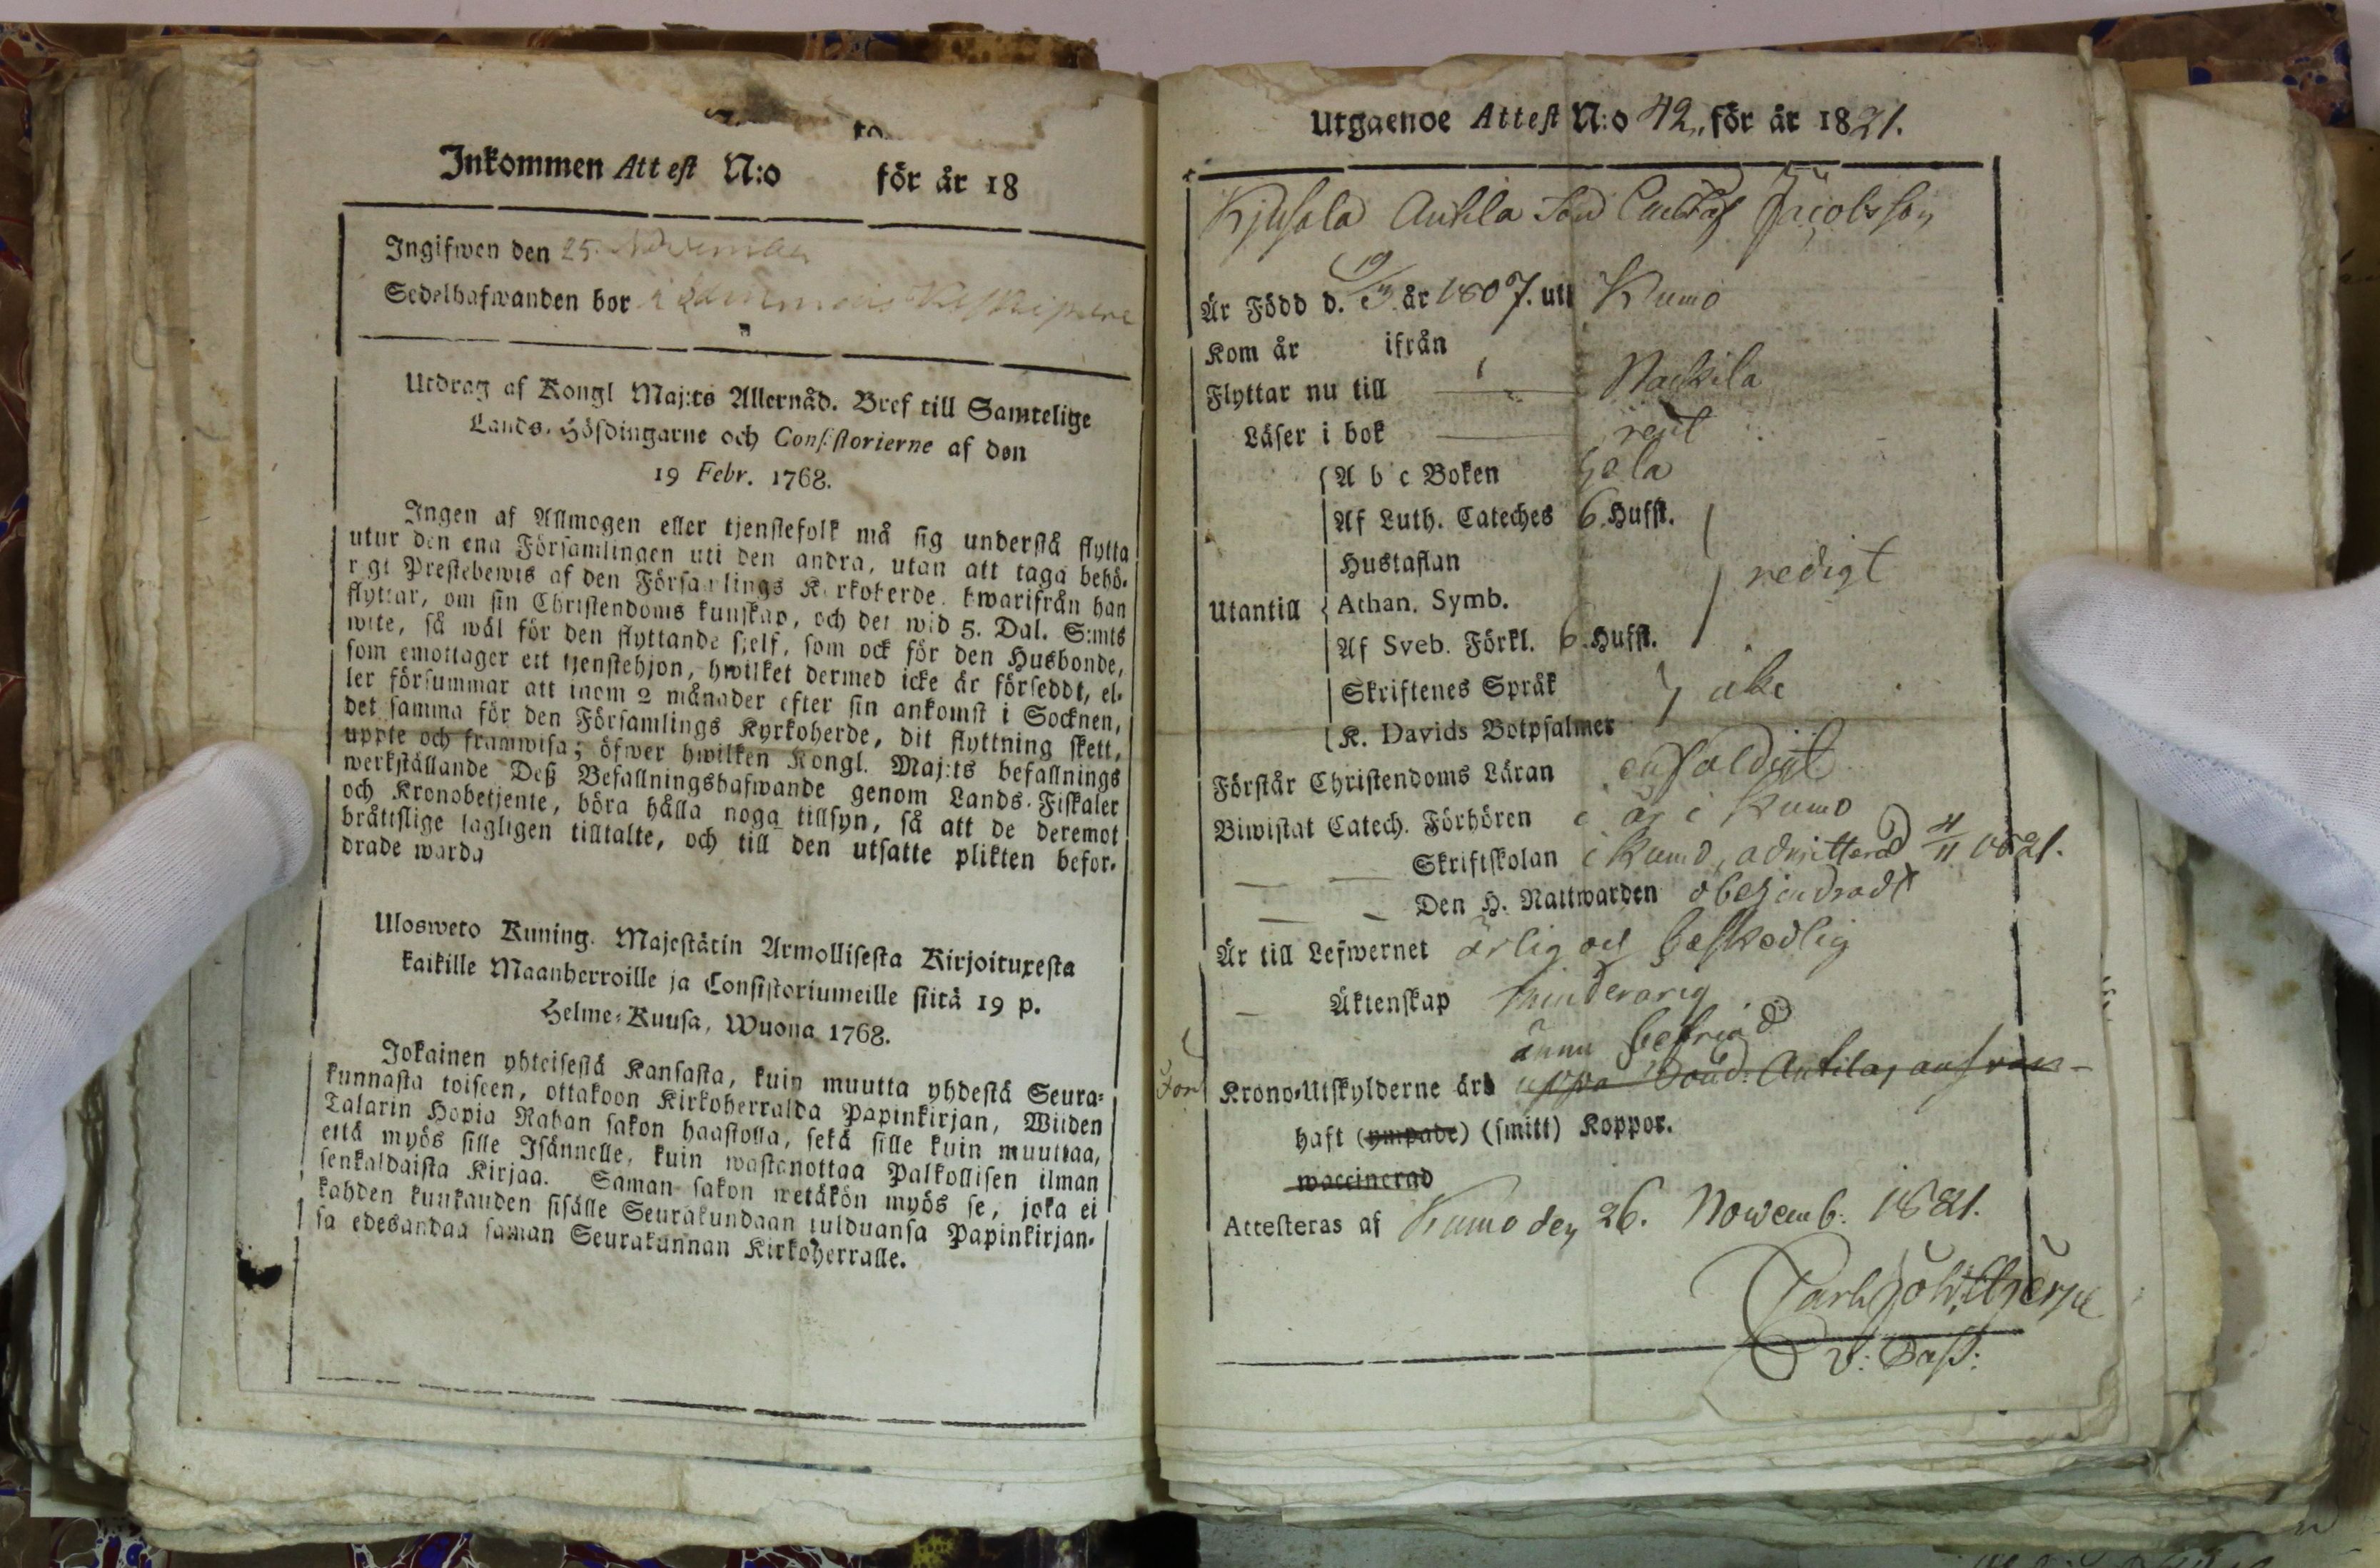 Inkommen Attest N:o för år 18
Ingifwen den 25. November
Sedelhafwanden bor i
Utdrag af Kongl Maj:ts Allernåd. Bref till Samtelige
Lands-Höfdingarne och Consistorierne af den
19 Febr. 1768.
Ingen af Allmogen eller tjenstefolk må sig understå flytta
utur den ena Församlingen uti den andra, utan att taga behö-
rigt Prestebewis af den Församlings Kyrkoherde, hwarifrån han
flyttar, om sin Christendoms kunskap, och det wid 5. Dal. S:mts
wite, så wäl för den flyttande sjelf, som ock för den Husbonde,
som emottager ett tjenstehjon, hwilket dermed icke är förseddt, el-
ler försummar att inom 2 månader efter sin ankomst i Socknen,
det samma för den Församlings Kyrkoherde, dit flyttning skett,
uppte och framwisa; öfwer hwilken Kongl. Maj:ts befallnings
werkställande Deß Befallningshafwande genom Lands-Fiskaler
och Kronobetjente, böra hålla noga tillsyn, så att de deremot
bråttslige lagligen tilltalte, och till den utsatte plikten befor-
drade warda
Ulosweto Kuning. Majestätin Armollisesta Kirjoituxesta
kaikille Maanherroille ja Consistoriumeille siitä 19 p.
Helme-Kuusa, Wuona 1768.
Jokainen yhteisestä Kansasta, kuin muutta yhdestä Seura-
kunnasta toiseen, ottakoon Kirkoherralda Papinkirjan, Wiiden
Talarin Hopia Rahan sakon haastolla, sekä sille kuin muuttaa,
että myös sille Isännelle, kuin wastanottaa Palkollisen ilman
senkaldaista Kirjaa. Saman sakon wetäkön myös se, joka ei
kahden kuukauden sisälle Seurakundaan tulduansa Papinkirjan-
sa edesandaa saman Seurakunnan Kirkoherralle.
Utgaende Attest N:o 42. för år 1821.
Kjusala Anttila Son Gustaf Jacobsson
Är Född d. 19/3 år 1807. uti Kumo
Kom år ifrån
Flyttar nu till Nackila
Läser i bok rent
A b c Boken hela
Af Luth. Cateches 6. Hufst.
Hustaflan
Utantill Athan. Symb. redigt
Af Sveb. Förkl. 6. Hufst.
Skriftenes Språk icke
K. Davids Botpsalmer
Förstår Christendoms Läran enfaldigt
Biwistat Catech. Förhören i år i Kumo
Skriftskolan i Kumo, admitterad 4/11 1821.
Den H. Nattwarden obehindradt
Är till Lefwernet ärlig och beskedlig
Äktenskap minderårig
ännu befriad
för Krono-Utskylderne är uppå Anttila
haft (ympade) (smitt) Koppor.
waccinerad
Attesteras af Kumo den 26. Novemb: 1821.
Carl Joh.
V: Past: